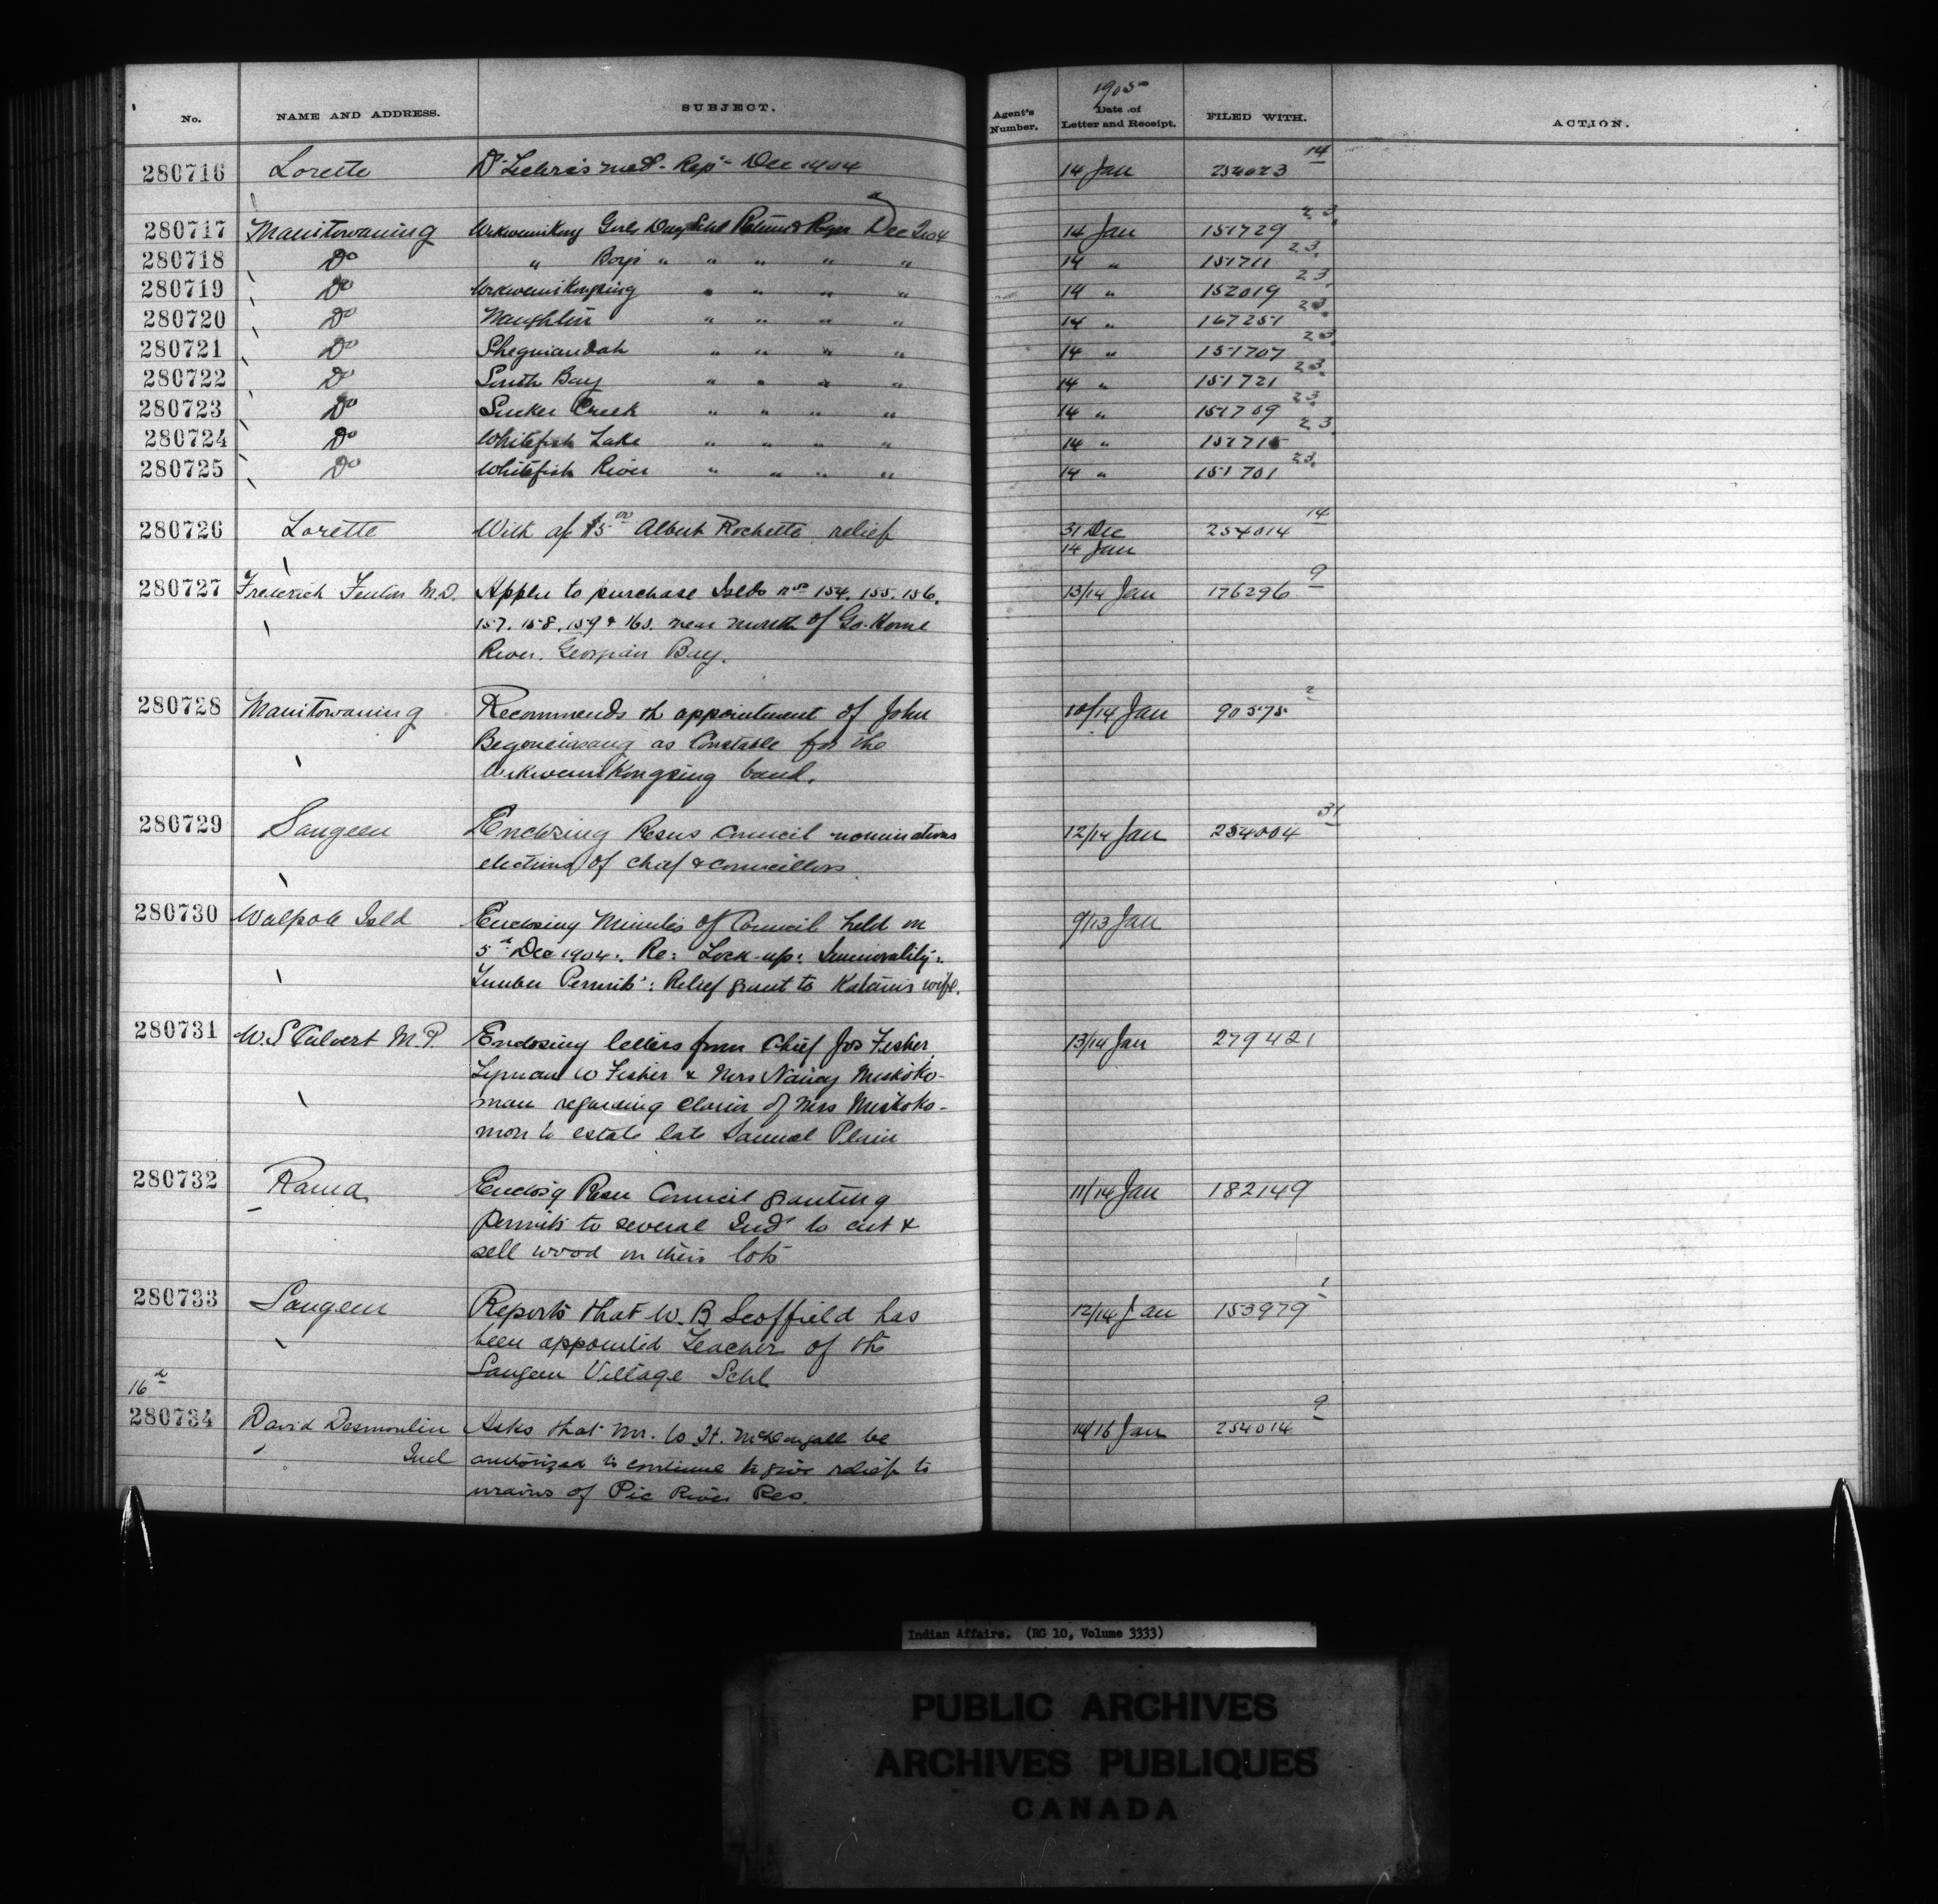 No. NAME AND ADDRESS. SUBJECT. Agent's Number. 1905 Date of Letter and Receipt. FILED WITH. ACTION.
280716 Lorette Dr med. Rept Dec 1904 14 Jan 254023 14
280717 Manitowaning Wikwemikong Girls Day Schl Return & Dec Qr 04 14 Jan 151729 23
280718 Do " Boys " " " " " 14 " 151711 23
280719 Do Wikwemikongsing " " " " 14 " 152019 23
280720 Do Naughton " " " " 14 " 167251 23
280721 Do Sheguiandah " " " " 14 " 151707 23
280722 Do South Bay " " " " 14 " 151721 23
280723 Do Sucker Creek " " " " 14 " 151709 23
280724 Do Whitefish Lake " " " " 14 " 23
280725 Do Whitefish River " " " " 14 " 151701 23
280726 Lorette With af $5.00 Albert Rochette relief 31 Dec 254014 14
14 Jan
280727 Frederick Fenton M.D. Appln to purchase Islds nos 154. 155. 156. 13/14 Jan 176296 9
157. 158. 159 & 160. near mouth of Go-Home
River. Georgian Bay.
280728 Manitowaning Recommends th appointment of John 10/14 Jan 90575 2
as Constable for the
Wikwemikongsing band.
280729 Saugeen Enclosing Resns Council nominations 12/14 Jan 254004 31
elections of Chief & Councillors
280730 Walpole Isld Enclosing Minutes of Council held on 9/13 Jan
5th Dec 1904. Re: Lock-up: Immorality:
Timber Permits: Relief grant to wife.
280731 W.S Calvert M.P. Enclosing letters from Chief Jos Fisher 13/14 Jan 279421
Lyman W Fisher & Mrs Nancy Miskoko-
man regarding claim of Mrs Miskoko-
mon to estate late Samuel Plain
280732 Rama Enclosg Resn Council granting 11/14 Jan 182149
permits to several Inds to cut &
sell wood on their lots
280733 Saugeen Reports that W. B Scoffield has 12/14 Jan 153979 1
been appointed Teacher of the
Saugeen Village Schl
16th
280734 David Desmoulin Asks that Mr. W. H. McDougall be 14/16 Jan 254014 9
Ind authorized to continue to give relief to
of Pic River Res.
Indian Affairs. (RG 10, Volume 3333)
PUBLIC ARCHIVES
ARCHIVES PUBLIQUES
CANADA